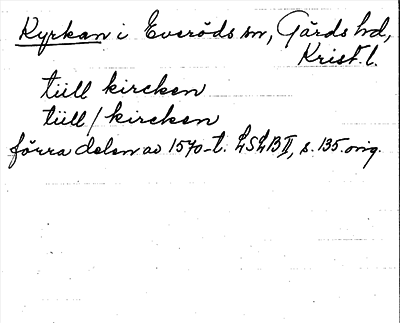 Kyrkan i Everöds sn, Gärds hd,
Krist. l.
tiill kircken
tiill/kircken
förra delen av 1570-t. LSLB II, s. 135. orig.